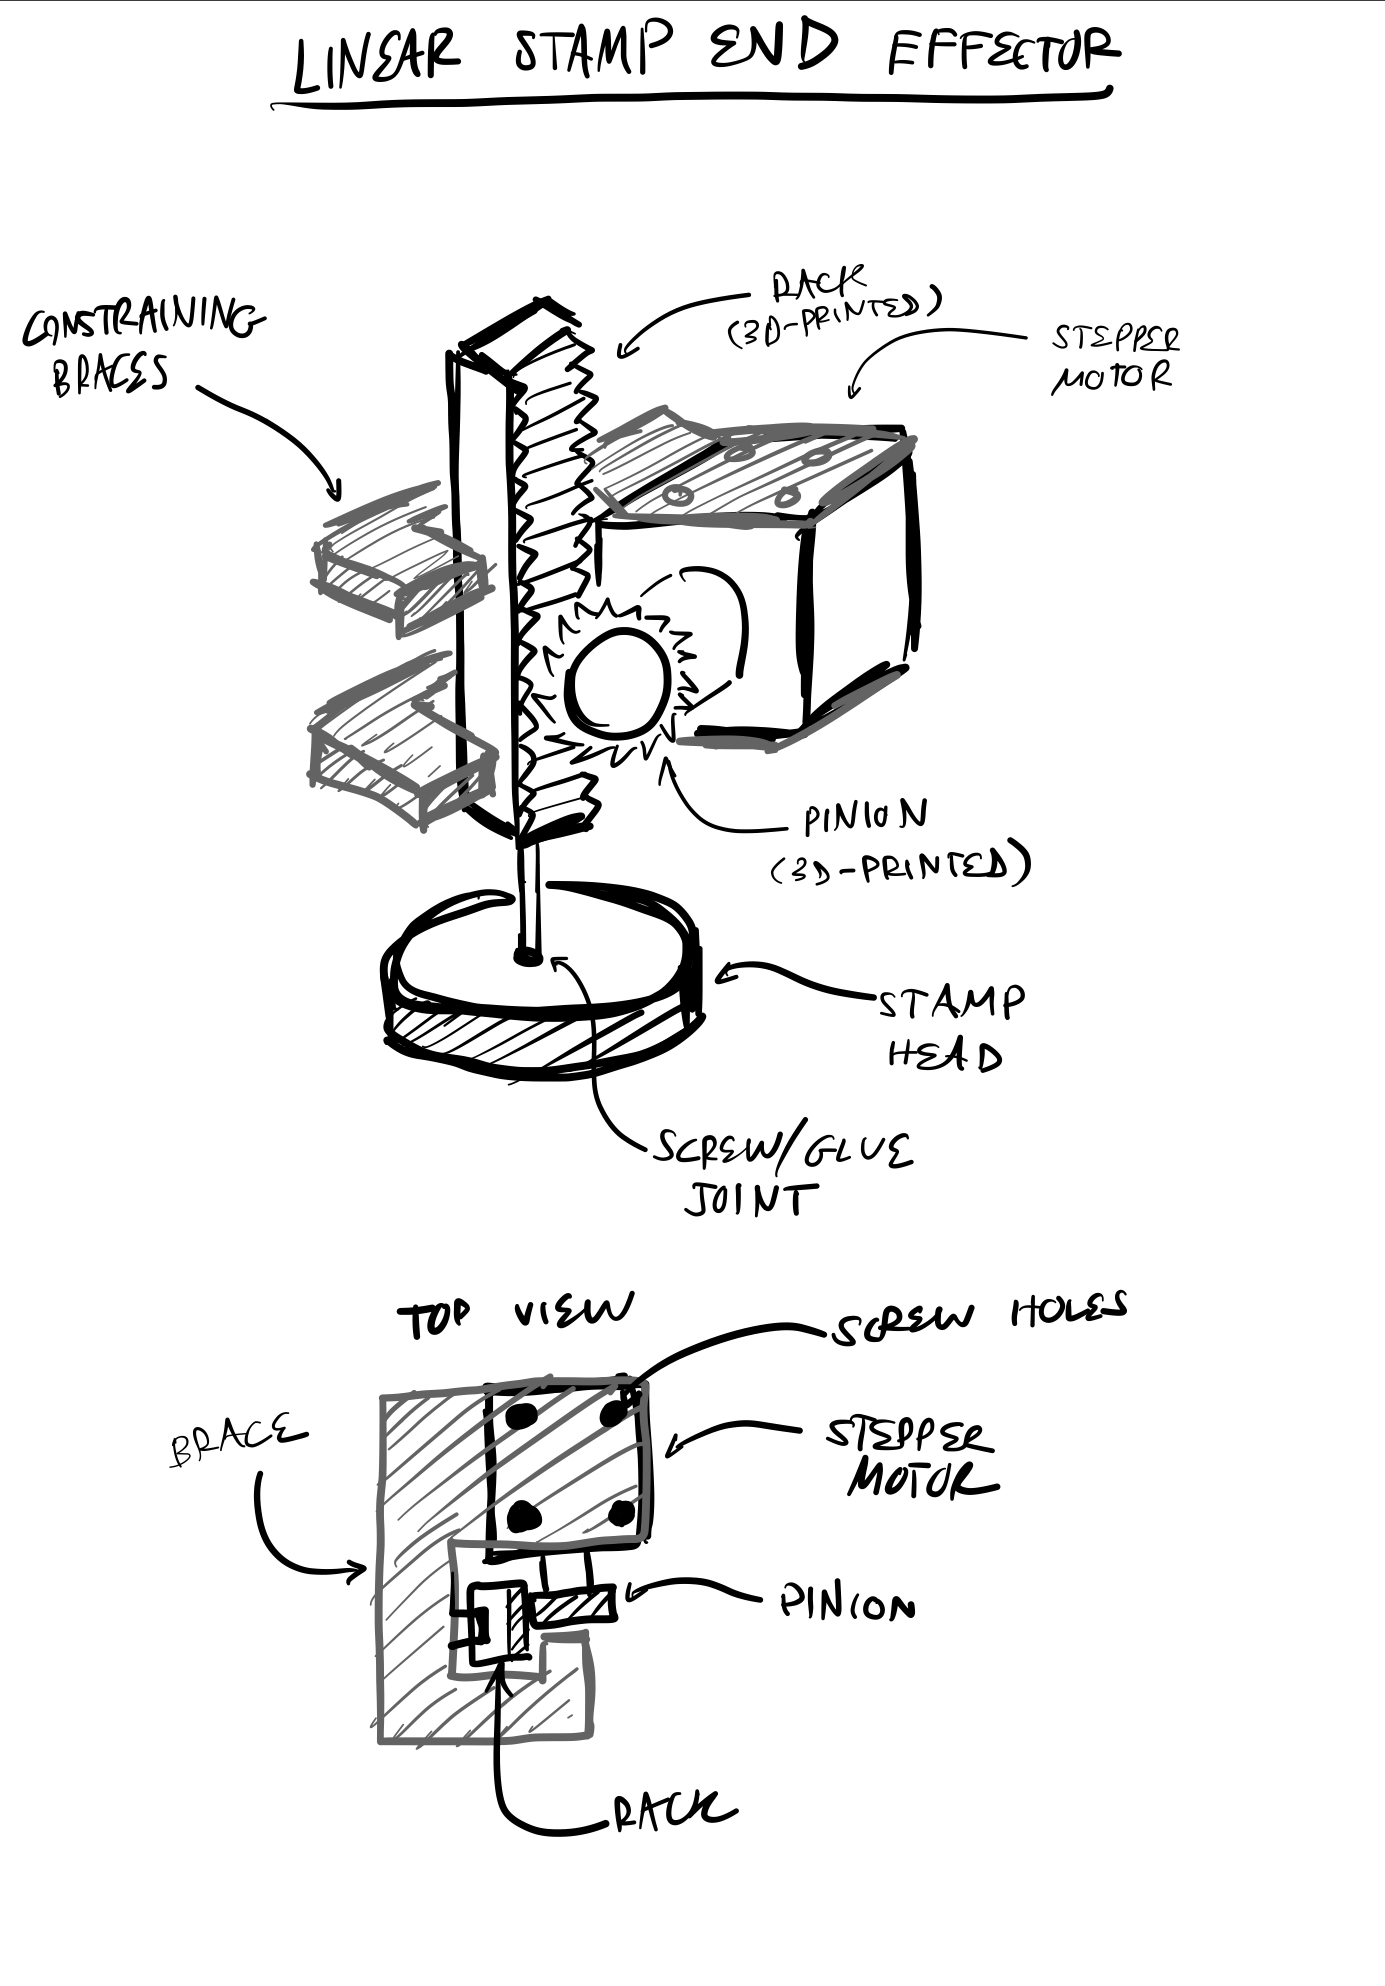 LINEAR STAMP END EFFECTOR
CONSTRAINING
BRACES
RACK
(3D-PRINTED)
STEPPER
MOTOR
PINION
(3D-PRINTED)
STAMP
HEAD
SCREW/GLUE
JOINT
TOP VIEW
SCREW HOLES
BRACE
STEPPER
MOTOR
PINION
RACK